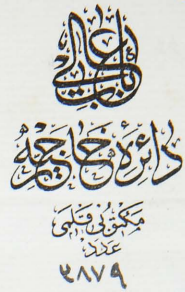 باب عالی
دائرهٔ خارجیه
مکتوبی قلمی
عدد
٣٨٧٩